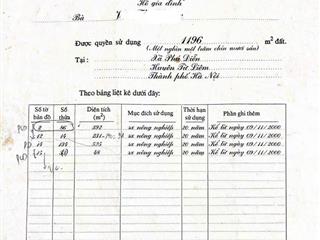 Hộ gia đình
Bà
Được quyền sử dụng 1196 m² đất.
(Một nghìn một trăm chín mươi sáu)
Tại: Xã Phú Diễn
Huyện Từ Liêm
Thành phố Hà Nội
Theo bảng liệt kê dưới đây:
Số tờ bản đồ Số thửa Diện tích (m²) Mục đích sử dụng Thời hạn sử dụng Phần ghi thêm
9 86 392 sx nông nghiệp 20 năm Kể từ ngày 09/11/2000
12 14 231 sx nông nghiệp 20 năm Kể từ ngày 09/11/2000
14 134 525 sx nông nghiệp 20 năm Kể từ ngày 09/11/2000
15 48 sx nông nghiệp 20 năm Kể từ ngày 09/11/2000